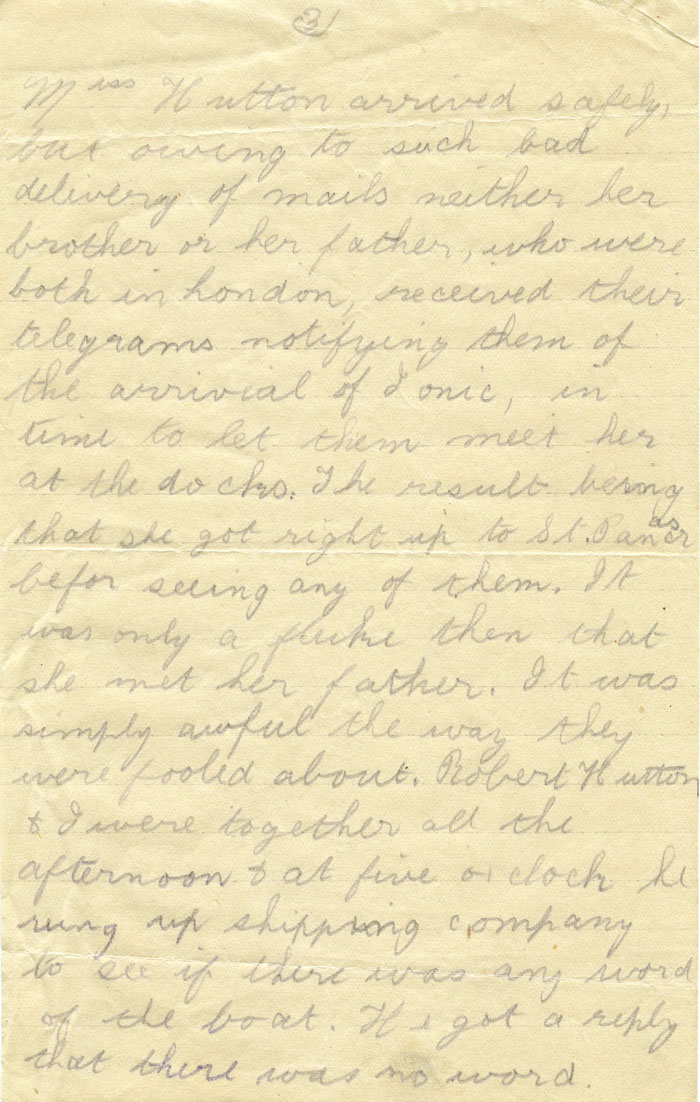 3
Miss Hutton arrived safely,
but owing to such bad
delivery of mails neither her
brother or her father, who were
both in London, received their
telegrams notifying them of
the arrivial of Ionic, in
time to let them meet her
at the docks. The result being
that she got right up to St. Pancras
befor seeing any of them. It
was only a fluke then that
she met her father. It was
simply awful the way they
were fooled about. Robert Hutton
& I were together all the
afternoon & at five o'clock he
rung up shipping company
to see if there was any word
of the boat. He got a reply
that there was no word.